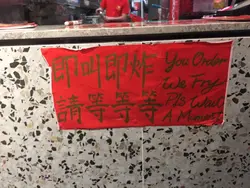 即叫即炸
請等等等
You Order
We Fry
Pls Wait
A Moment